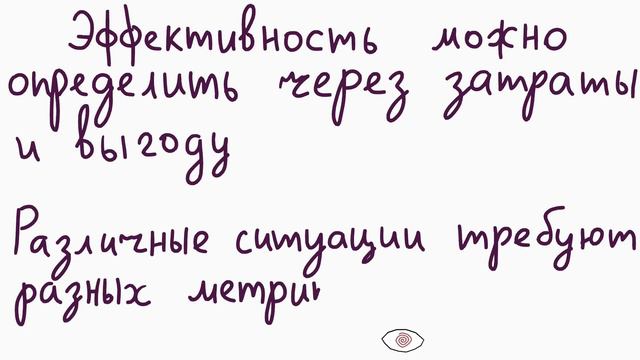 Эффективность можно
определить через затраты
и выгоду
Различные ситуации требуют
разных метри